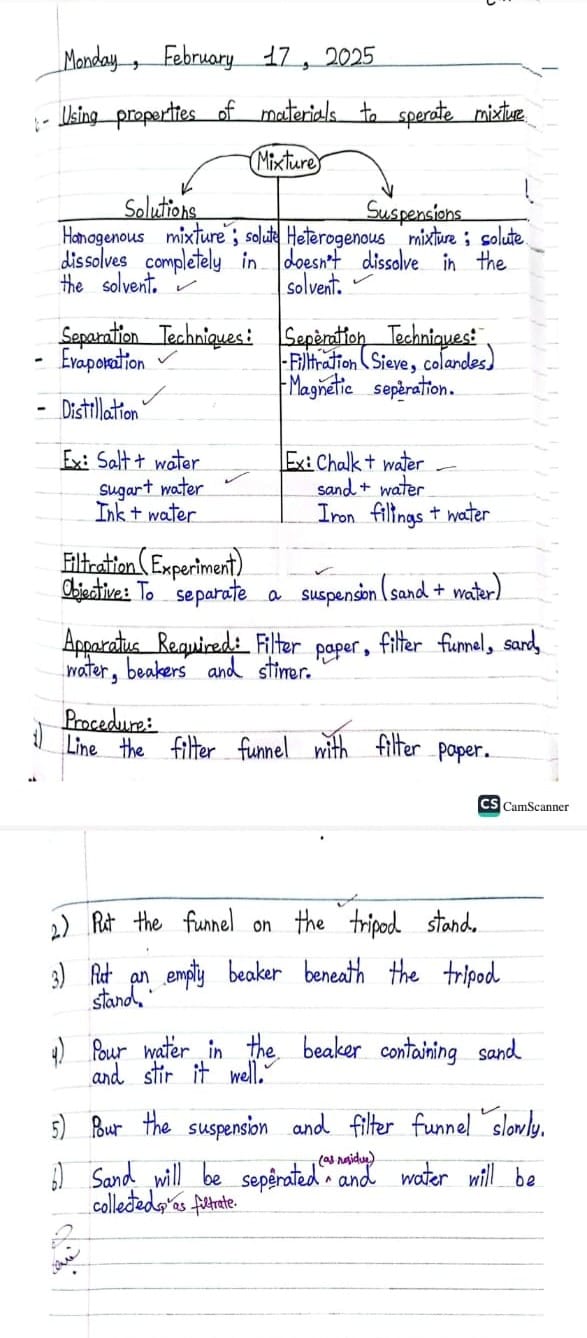 Monday, February 17, 2025
:- Using properties of materials to sperate mixture
Mixture
Solutions
Suspensions
Homogenous mixture ; solute
dissolves completely in
the solvent.
Heterogenous mixture ; solute
doesn't dissolve in the
solvent.
Separation Techniques:
- Evaporation
- Distillation
Seperation Techniques:
- Filtration (Sieve, colandes)
- Magnetic seperation.
Ex: Salt + water
sugar + water
Ink + water
Ex: Chalk + water
sand + water
Iron filings + water
Filtration (Experiment)
Objective: To separate a suspension (sand + water)
Apparatus Required: Filter paper, filter funnel, sand,
water, beakers and stirrer.
Procedure:
1) Line the filter funnel with filter paper.
CS CamScanner
2) Put the funnel on the tripod stand.
3) Put an empty beaker beneath the tripod
stand.
4) Pour water in the beaker containing sand
and stir it well.
5) Pour the suspension and filter funnel slowly.
(as residue)
6) Sand will be seperated ^ and water will be
collected as filtrate.